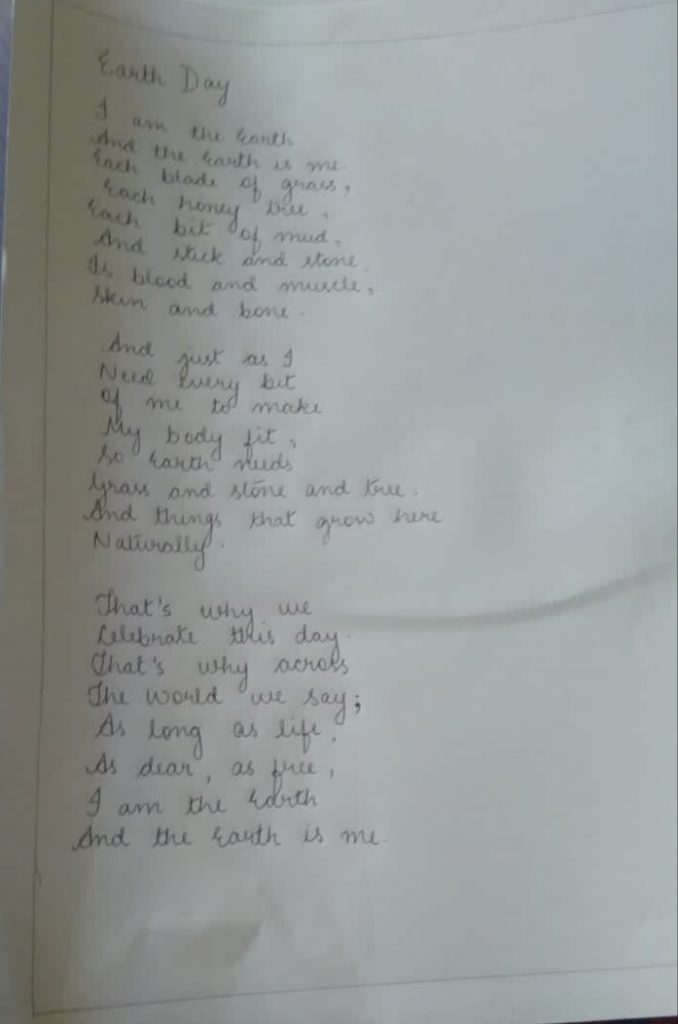 Earth Day
I am the Earth
And the Earth is me.
Each blade of grass,
Each honey tree,
Each bit of mud,
And stick and stone,
Is blood and muscle,
Skin and bone.
And just as I
Need Every bit
Of me to make
My body fit,
So Earth needs
Grass and stone and tree.
And things that grow here
Naturally.
That's why we
Celebrate this day.
That's why across
The world we say;
As long as life,
As dear, as free,
I am the Earth
And the Earth is me.